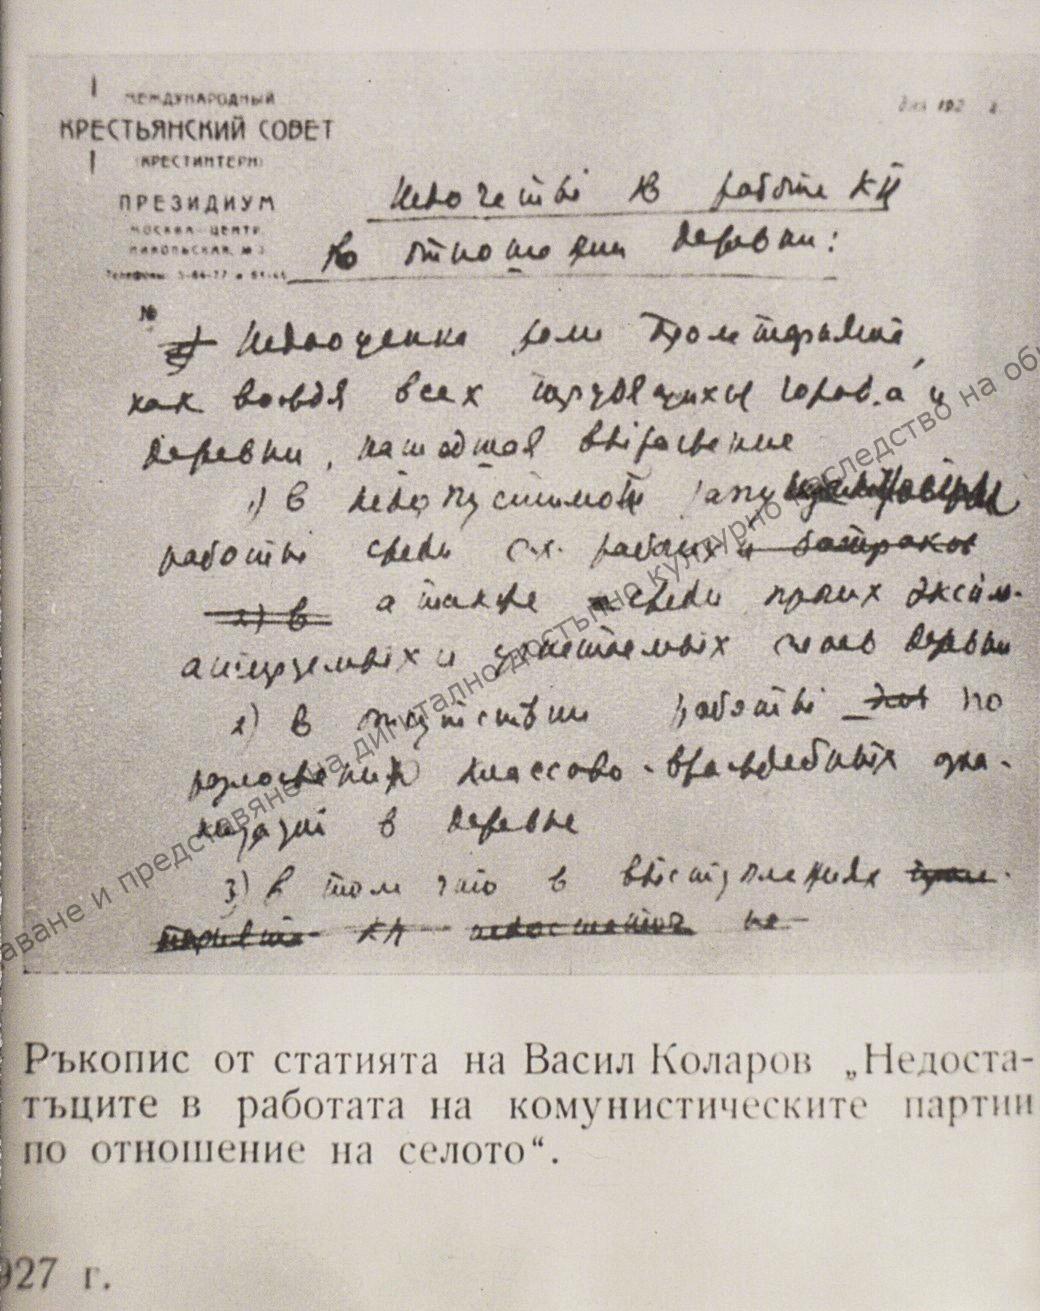 МЕЖДУНАРОДНЫЙ
КРЕСТЬЯНСКИЙ СОВЕТ
(КРЕСТИНТЕРН)
ПРЕЗИДИУМ
МОСКВА - ЦЕНТР
НИКОЛЬСКАЯ,
Телефоны:
дня 192 г.
№
Недочеты в работе КП
по отношении деревни:
Недооценка роли пролетариата,
как вождя всех трудящихся города и
деревни, нашедшая выражение
1) в недопустимой
работы среди с.х. рабочих и батраков
2) в а также среди прочих эксплу-
атируемых и угнетаемых слоев деревни
2) в отсутствии работы по
разложении классово-враждебных орга-
низаций в деревне
3) в том что в выступлениях
КП недостаточ но
Ръкопис от статията на Васил Коларов „Недоста-
тъците в работата на комунистическите партии
по отношение на селото“.
927 г.
аване и представяне на дигитално достъпно културно наследство на об